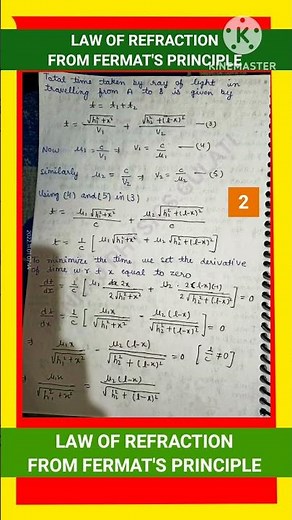 LAW OF REFRACTION
FROM FERMAT'S PRINCIPLE
KINEMASTER
Total time taken by ray of light in
travelling from A to B is given by
t = t₁ + t₂
t = √(h₁²+x²)/V₁ + √(h₂²+(l-x)²)/V₂ —(3)
Now μ₁ = c/V₁ ⇒ V₁ = c/μ₁ —(4)
Similarly μ₂ = c/V₂ ⇒ V₂ = c/μ₂ —(5)
Using (4) and (5) in (3)
2
t = μ₁√(h₁²+x²)/c + μ₂√(h₂²+(l-x)²)/c
t = 1/c [μ₁√(h₁²+x²) + μ₂√(h₂²+(l-x)²)]
To minimize the time we set the derivative
of time w.r.t x equal to zero
dt/dx = 1/c [μ₁ 2x/2√(h₁²+x²) + μ₂ · 2(l-x)(-1)/2√(h₂²+(l-x)²)] = 0
dt/dx = 1/c [μ₁x/√(h₁²+x²) - μ₂(l-x)/√(h₂²+(l-x)²)] = 0
⇒ μ₁x/√(h₁²+x²) - μ₂(l-x)/√(h₂²+(l-x)²) = 0 [1/c ≠ 0]
⇒ μ₁x/√(h₁²+x²) = μ₂(l-x)/√(h₂²+(l-x)²)
LAW OF REFRACTION
FROM FERMAT'S PRINCIPLE